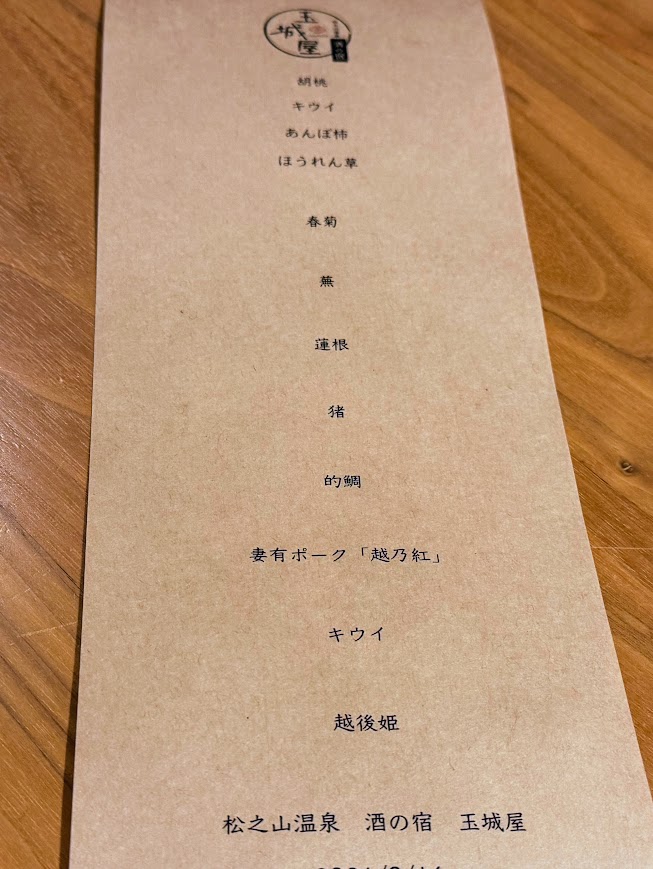 玉城屋
酒の宿
胡桃
キウイ
あんぽ柿
ほうれん草
春菊
蕪
蓮根
猪
的鯛
妻有ポーク「越乃紅」
キウイ
越後姫
松之山温泉　酒の宿　玉城屋